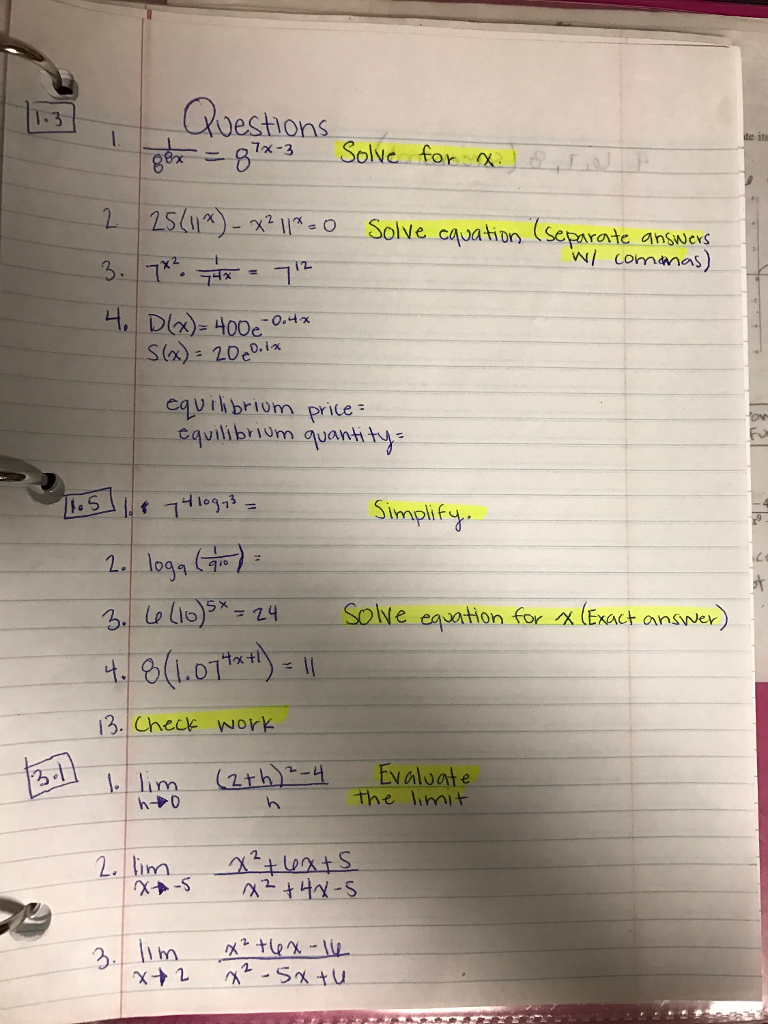 1.3
Questions
1. 1/8^{8x} = 8^{7x-3} Solve for x.
2 25(11^x) - x^2 11^x = 0 Solve equation (separate answers
w/ commas)
3. 7^{x^2} · 1/7^{4x} = 7^{12}
4. D(x) = 400e^{-0.4x}
S(x) = 20e^{0.1x}
equilibrium price =
equilibrium quantity =
1.5 1. 7^{4 log_7 3} = Simplify.
2. log_9 (1/9^{10}) =
3. 6(10)^{5x} = 24 Solve equation for x (Exact answer)
4. 8(1.07^{4x+1}) = 11
13. Check work
3.1 1. lim h→0 (2+h)^2-4 / h Evaluate
the limit
2. lim x→-5 x^2+6x+5 / x^2+4x-5
3. lim x→2 x^2+6x-16 / x^2-5x+6